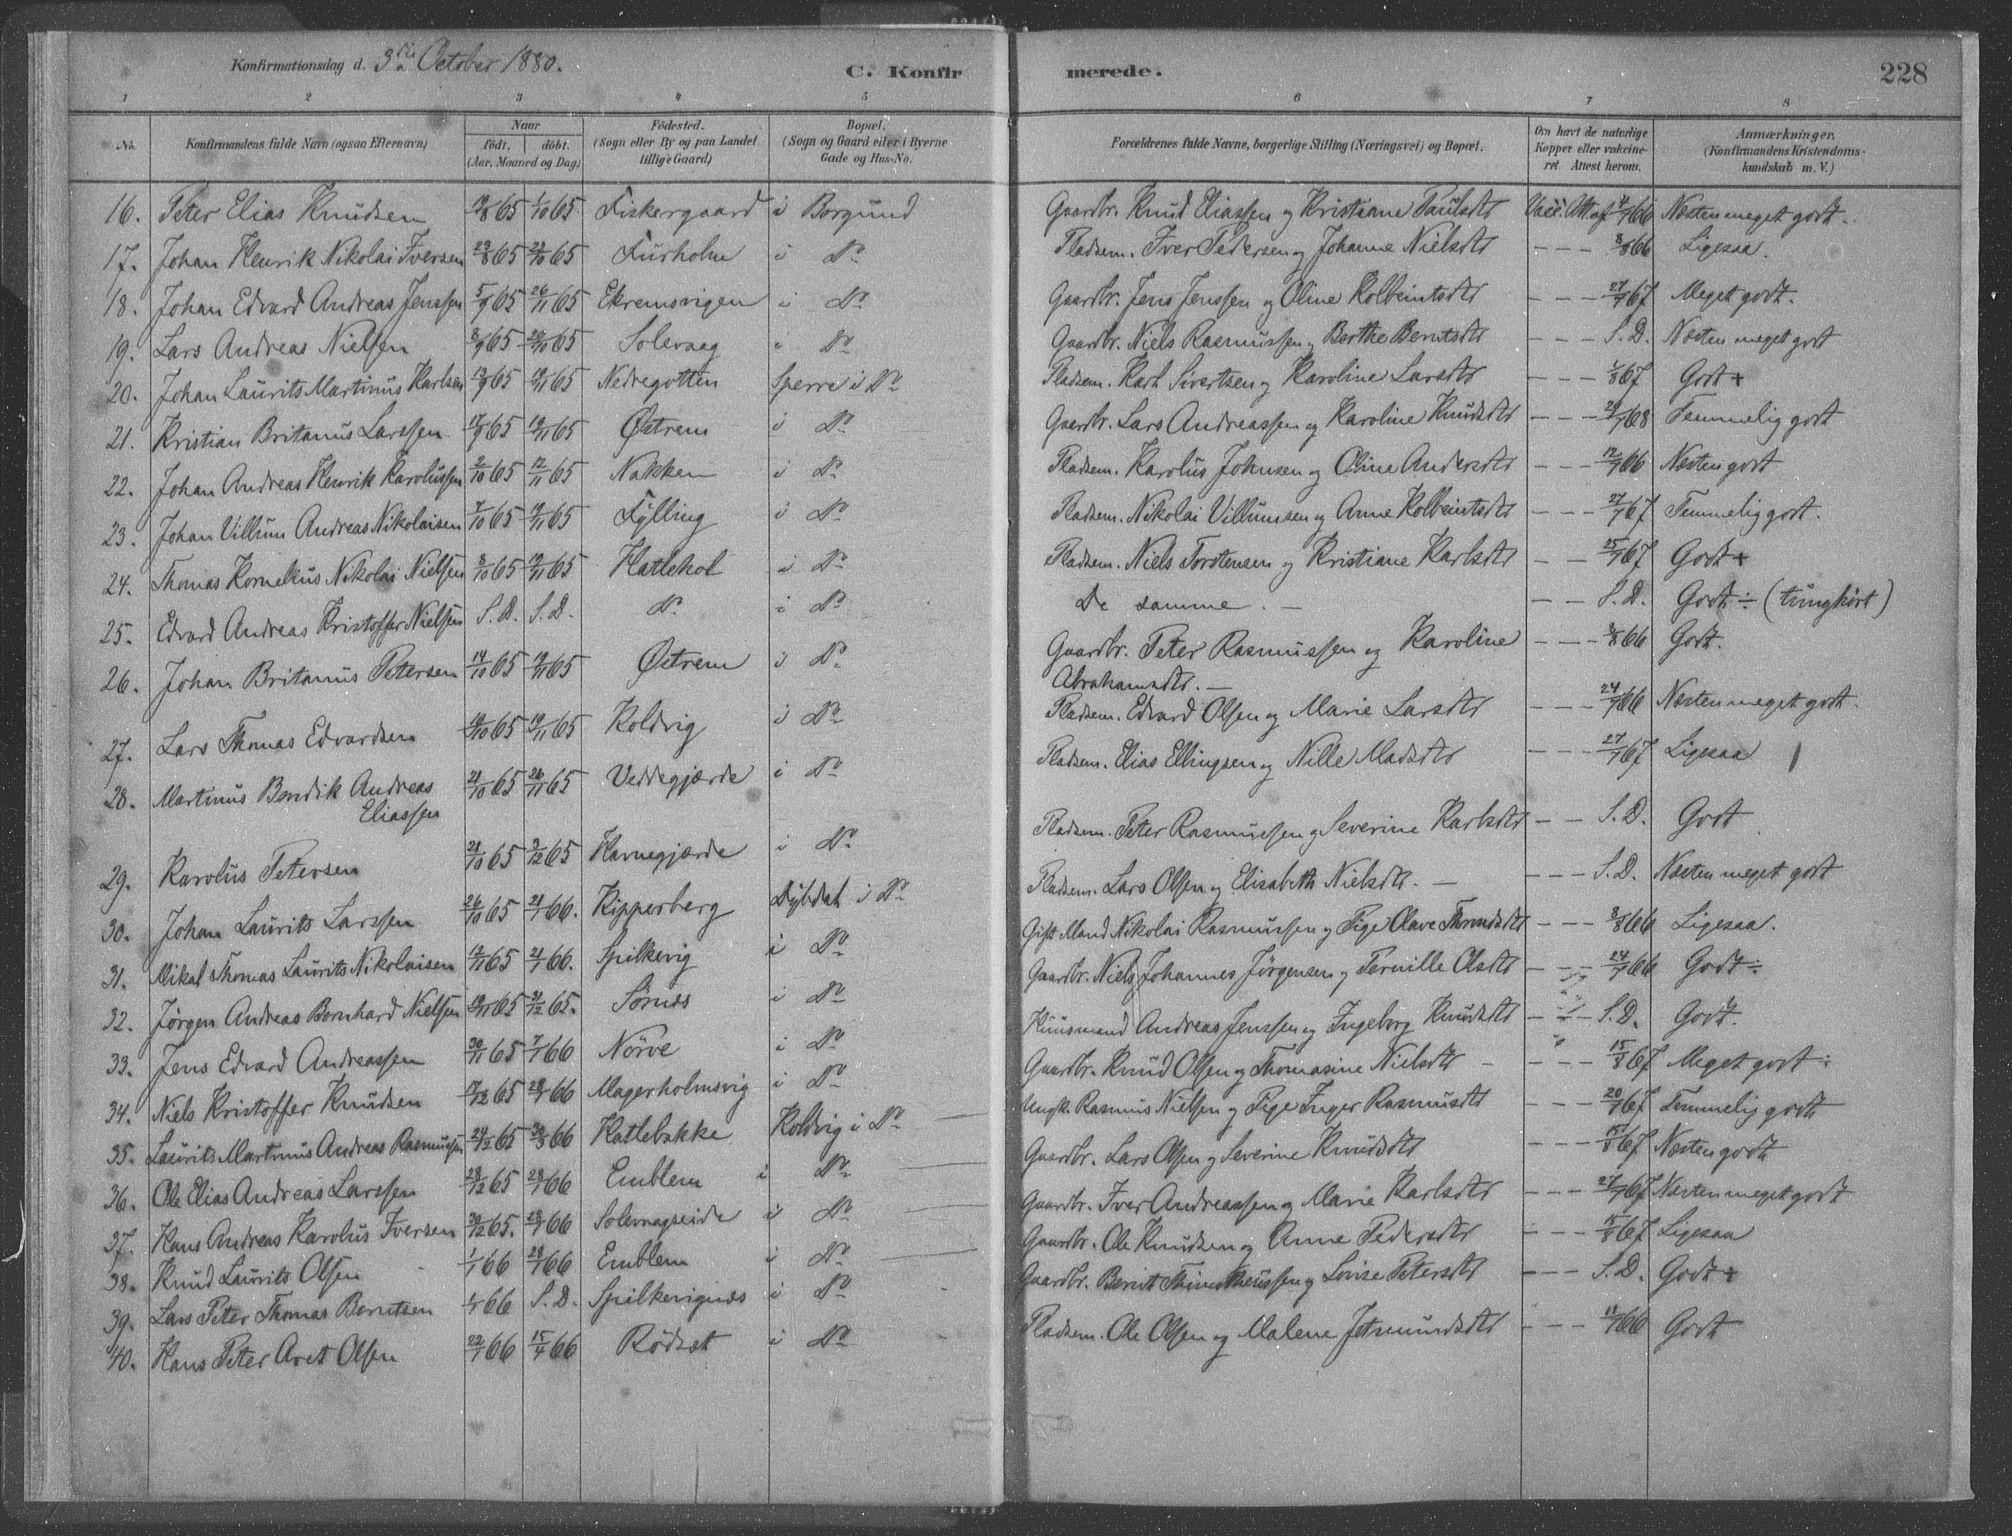 Konfirmationsdag d. 3die October 1880.
C. Konfirmerede.
228
1 2 3 4 5 6 7 8
No. Konfirmandens fulde Navn (ogsaa Efternavn) Naar födt. döbt. (Aar, Maaned og Dag) Födested. (Sogn eller By og paa Landet tillige Gaard) Bopæl. (Sogn og Gaard eller i Byerne Gade og Hus-No. Forældrenes fulde Navne, borgerlige Stilling (Næringsvei) og Bopæl. Om havt de naturlige Kopper eller vakcineret Attest herom. Anmærkninger. (Konfirmandens Kristendomskundskab m. V.)
16. Peter Elias Knudsen 65 1/10 65 Fiskergaard i Borgund Gaardbr. Knud Eliassen og Kristiane Paulsdtr Vacc. Att. af 66 Næsten meget godt.
17. Johan Henrik Nikolai Iversen 23/8 65 65 Furholm i Do Pladsem. Iver Pedersen og Johanne Nielsdtr – – – 8/8 66 Ligesaa.
18. Johan Edvard Andreas Jenssen 5/9 65 26/11 65 Ekremsvigen i Do Gaardbr. Jens Jenssen og Oline Kolbeintsdtr – – – 27/7 67 Meget godt.
19. Lars Andreas Nielsen 8/9 65 65 Solevaag i Do Gaardbr. Niels Rasmussen og Berthe Berntsdtr – – – S. D. Næsten meget godt
20. Johan Laurits Martinus Karlsen 65 19/11 65 Nedregotten Sperre i Do Pladsem. Karl Sivertsen og Karoline Larsdtr – – – 67 Godt +
21. Kristian Britanus Larssen 17/9 65 19/11 65 Østrem i Do Gaardbr. Lars Andreassen og Karoline Knudsdtr – – – 68 Temmelig godt
22. Johan Andreas Henrik Karolussen 2/10 65 12/11 65 Nakken i Do Pladsem. Karolus Johnsen og Oline Andersdtr – – – 12/7 66 Næsten godt
23. Johan Villum Andreas Nikolaisen 7/10 65 19/11 65 Fylling i Do Pladsem. Nikolai Villumsen og Anne Kolbeintsdtr – – – 27/7 67 Temmelig godt.
24. Thomas Kornelius Nikolai Nielsen 8/10 65 19/11 65 Hatlehol i Do Pladsem. Niels Torstensen og Kristiane Karlsdtr – – – 25/7 67 Godt +
25. Edvard Andreas Kristoffer Nielsen S. D. S. D. Do i Do De samme. – – – S. D. Godt ÷ (tunghört)
26. Johan Britanus Petersen 14/10 65 19/11 65 Østrem i Do Gaardbr. Peter Rasmussen og Karoline – – – 8/8 66 Godt.
Abrahamsdtr. –
27. Lars Thomas Edvardsen 65 19/11 65 Koldvig i Do Pladsem. Edvard Olsen og Marie Larsdtr – – – 24/7 66 Næsten meget godt.
28. Martinus Bendik Andreas 21/10 65 26/11 65 Veddegjærde i Do Pladsem. Elias Ellingsen og Nille Madsdtr – – – 27/7 67 Ligesaa
Eliassen
29. Karolus Petersen 21/10 65 3/12 65 Havnegjærde i Do Pladsem. Peter Rasmussen og Severine Karlsdtr – – S. D. Godt
30. Johan Laurits Larssen 26/10 65 21/1 66. Kipperberg Dybdal i Do Pladsem. Lars Olsen og Elisabeth Nielsdtr. – – – – S. D. Næsten meget godt
31. Mikal Thomas Laurits Nikolaisen 12/11 65 21/1 66. Spilkevig i Do Gift Mand Nikolai Rasmussen og Pige Olave – – – 8/8 66 Ligesaa.
32. Jörgen Andreas Bernhard Nielsen 19/11 65 31/12 65. Sörnes i Do Gaardbr. Niels Johannes Jörgensen og Pernille Olsdtr – – – 24/7 66 Godt ÷
33. Jens Edvard Andreassen 30/11 65 7/1 66 Nörve i Do Huusmand Andreas Jenssen og Ingeborg Knudsdtr – – – S. D. Godt.
34. Niels Kristoffer Knudsen 17/12 65 28/1 66 Magerholmsvig i Do Gaardbr. Knud Olsen og Thomasine Nielsdtr – 15/8 67 Meget godt ÷
35. Laurits Martinus Andreas Rasmussen 24/12 65 66 Hatlebakke Koldvig i Do Ungk. Rasmus Nielsen og Pige Inger Rasmusdtr – – – 20/7 67 Temmelig godt
36. Ole Elias Andreas Larssen 28/12 65 28/1 66 Emblem i Do Gaardbr. Lars Olsen og Severine Knudsdtr – – – 15/8 67 Næsten godt
37. Hans Andreas Karolus Iversen 30/12 65. 28/1 66 Solevagseide i Do Gaardbr. Iver Andreassen og Marie Karlsdtr – – – 27/7 67 Næsten meget godt
38. Knud Laurits Olsen 1/1 66 28/1 66 Emblem i Do Gaardbr. Ole Knudsen og Anne Pedersdtr – – – 15/8 67 Ligesaa
39. Lars Peter Thomas Berntsen 66 S. D. Spilkevignæs i Do Gaardbr. Bernt Thimotheussen og Lovise Petersdtr – – – S. D. Godt +
40. Hans Peter Aret Olsen 22/1 66 15/4 66 Rödset i Do Pladsem. Ole Olsen og Malene – – – 11/7 66 Godt